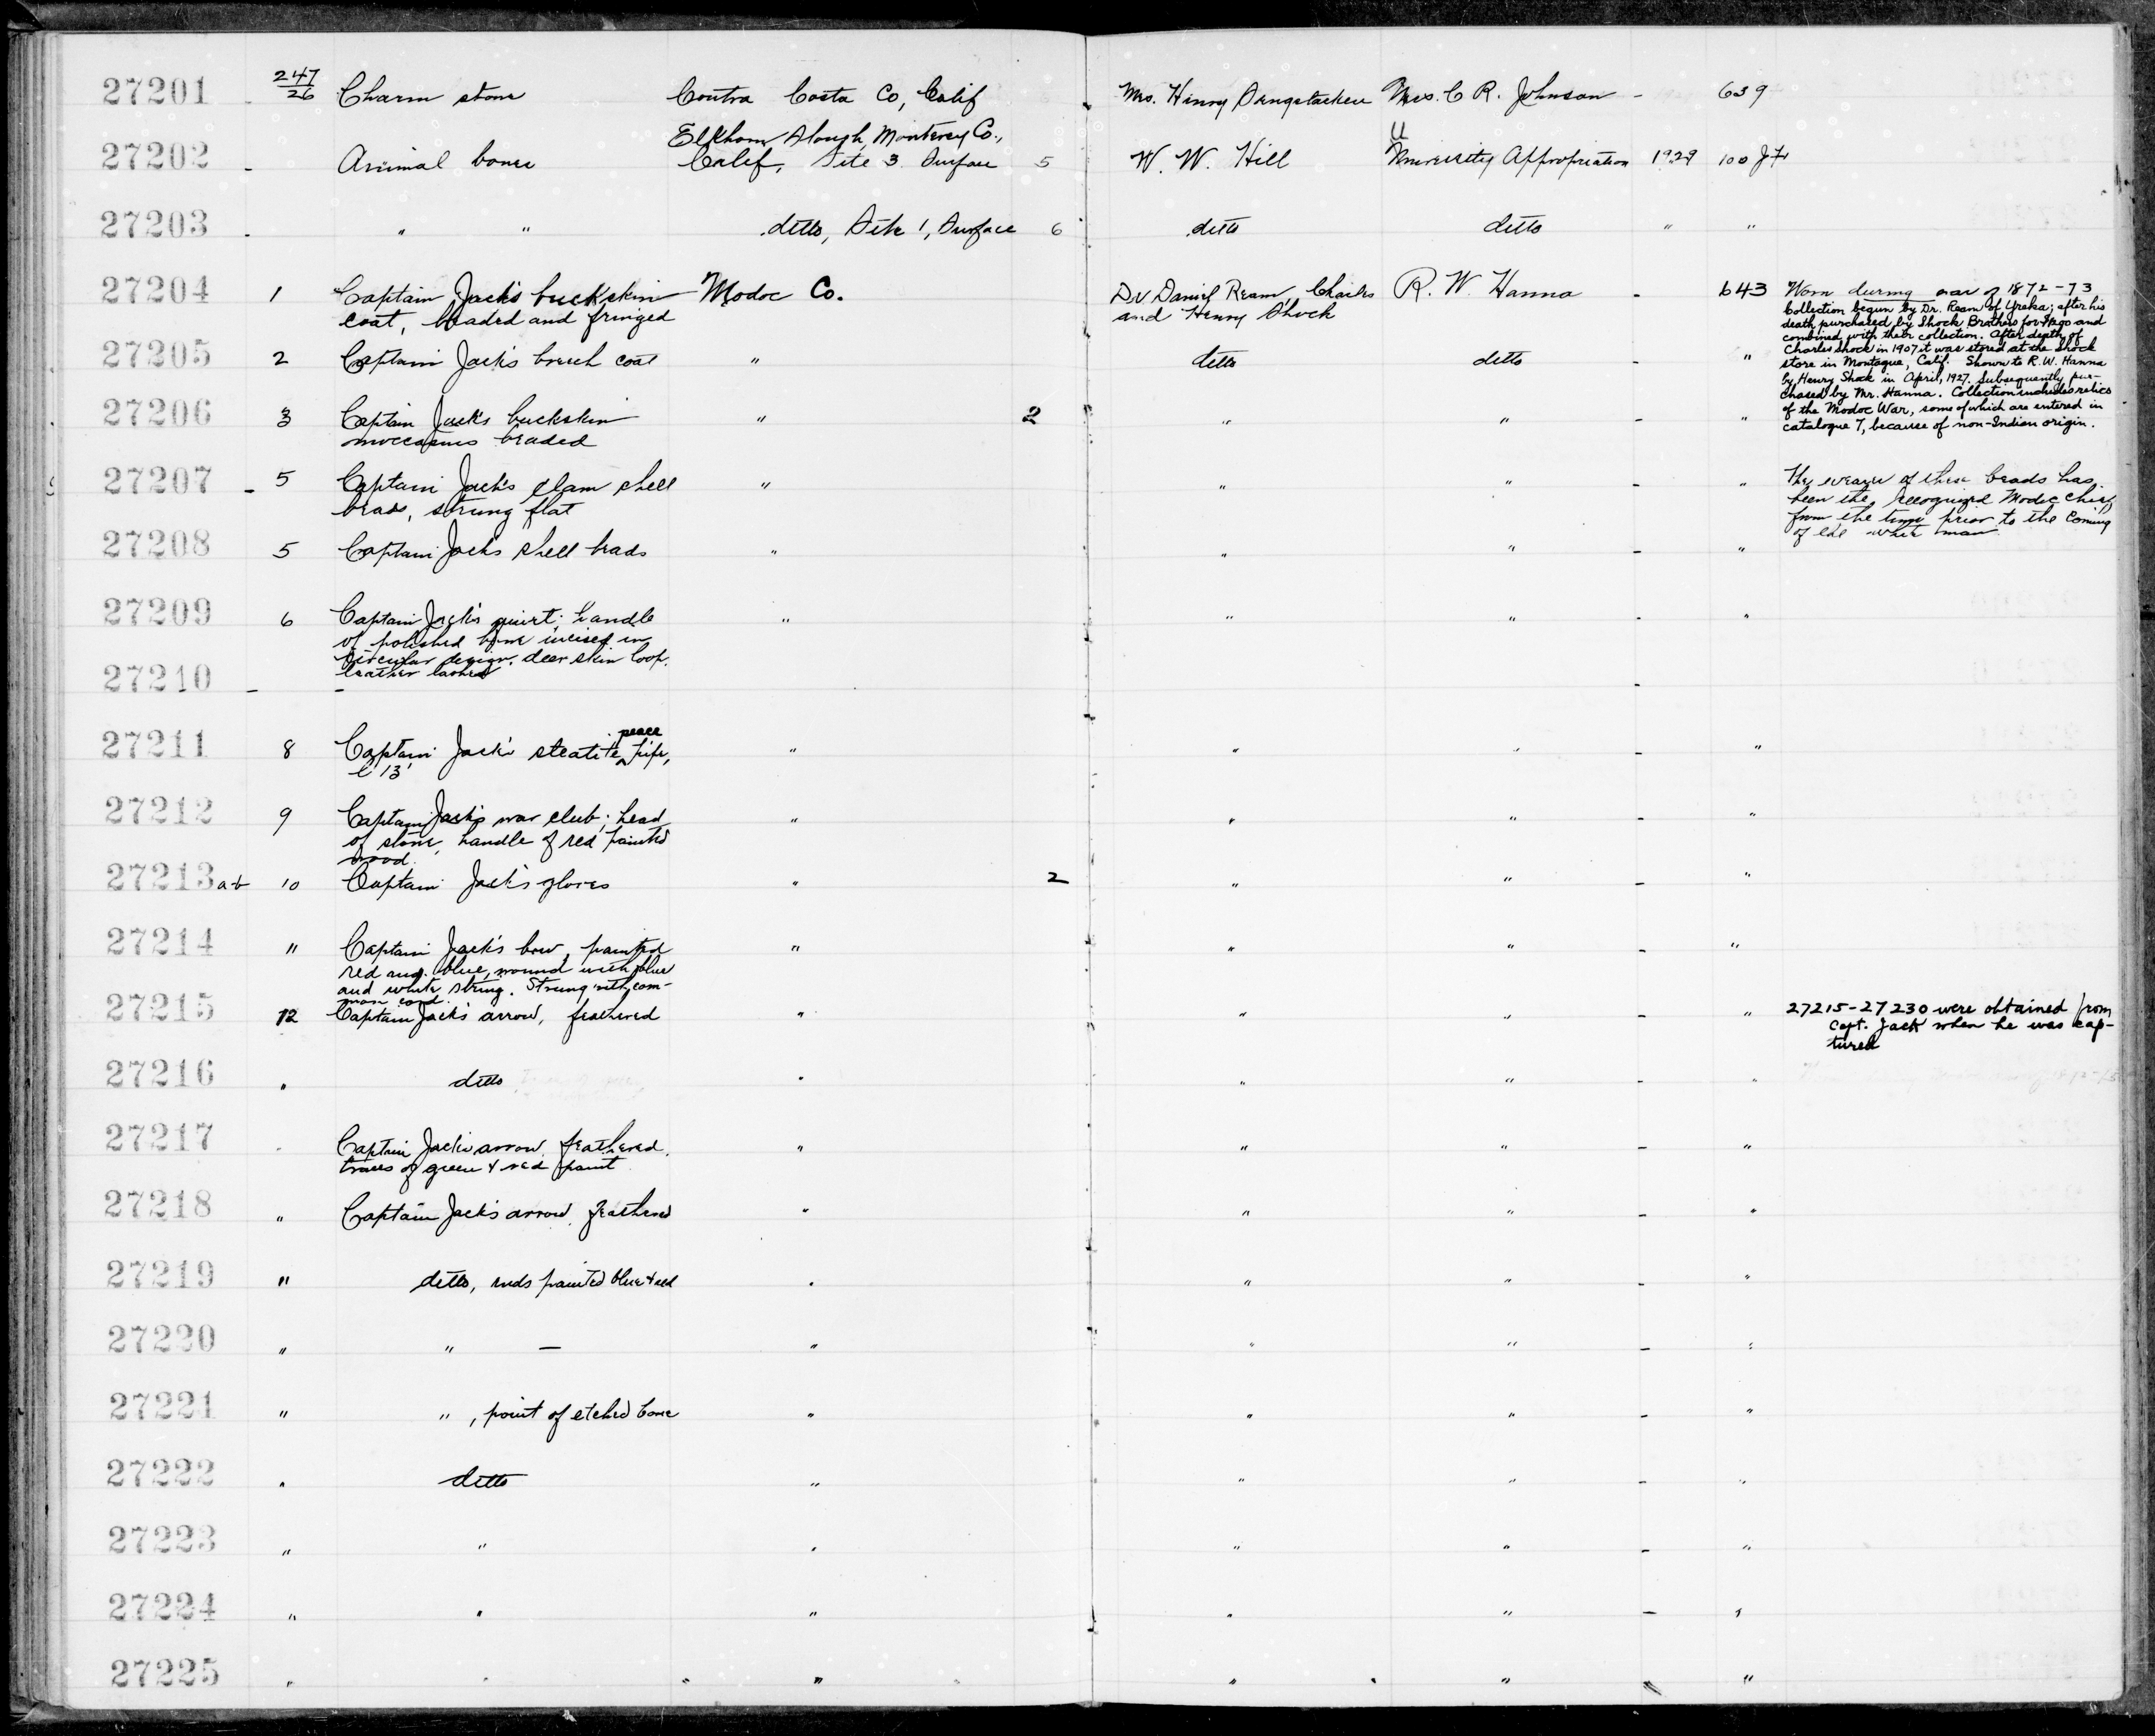 27201 247/26 Charm stone Contra Costa Co, Calif Mrs. Henry Mrs. C R. Johnson - 639
27202 - Animal bones Elkhorn Slough, Monterey Co.,
Calif, Site 3 Surface 5 W. W. Hill University Appropriation 1929 100
27203 - " " ditto, Site 1, Surface 6 ditto ditto " "
27204 1 Captain Jack's buckskin Modoc Co. Dr Daniel Ream, Charles R. W. Hanna - 643 Worn during war of 1872-73
coat, beaded and fringed and Henry Shock
Collection begun by Dr. Ream of Yreka; after his
death purchased by Shock Brothers for and
combined with their collection. After death of
Charles Shock in 1907 it was stored at the Shock
store in Montague, Calif. Shown to R.W. Hanna
by Henry Shock in April, 1927. Subsequently pur-
chased by Mr. Hanna. Collection includes relics
of the Modoc War, some of which are entered in
catalogue 7, because of non-Indian origin.
27205 2 Captain Jack's breech coat " ditto ditto - "
27206 3 Captain Jack's buckskin " 2 " " - "
moccasins beaded
27207 - 5 Captain Jack's clam shell " " " - " The wearer of these beads has
beads, strung flat been the recognized Modoc chief,
from the time prior to the coming
of the white man
27208 5 Captain Jack's shell beads " " " - "
27209 6 Captain Jack's quirt; handle " " " - "
of polished bone incised in
circular design. deer skin loop.
leather lashes
27210 - - -
27211 8 Captain Jack's steatite peace pipe, " " " - "
l 13"
27212 9 Captain Jack's war club; head " " " - "
of stone, handle of red painted
wood.
27213 a-b 10 Captain Jack's gloves " 2 " " - "
27214 11 Captain Jack's bow, painted " " " - "
red and blue, wound with blue
and white string. Strung with com-
mon cord.
27215 12 Captain Jack's arrow, feathered " " " - " 27215-27230 were obtained from
Capt. Jack when he was cap-
tured
27216 " ditto " " " - "
27217 " Captain Jack's arrow, feathered. " " " - "
traces of green & red paint
27218 " Captain Jack's arrow, feathered " " " - "
27219 " ditto, ends painted blue & red " " " - "
27220 " " — " " " - "
27221 " ", point of etched bone " " " - "
27222 " ditto " " " - "
27223 " " " " " - "
27224 " " " " " - "
27225 " " " " " " "